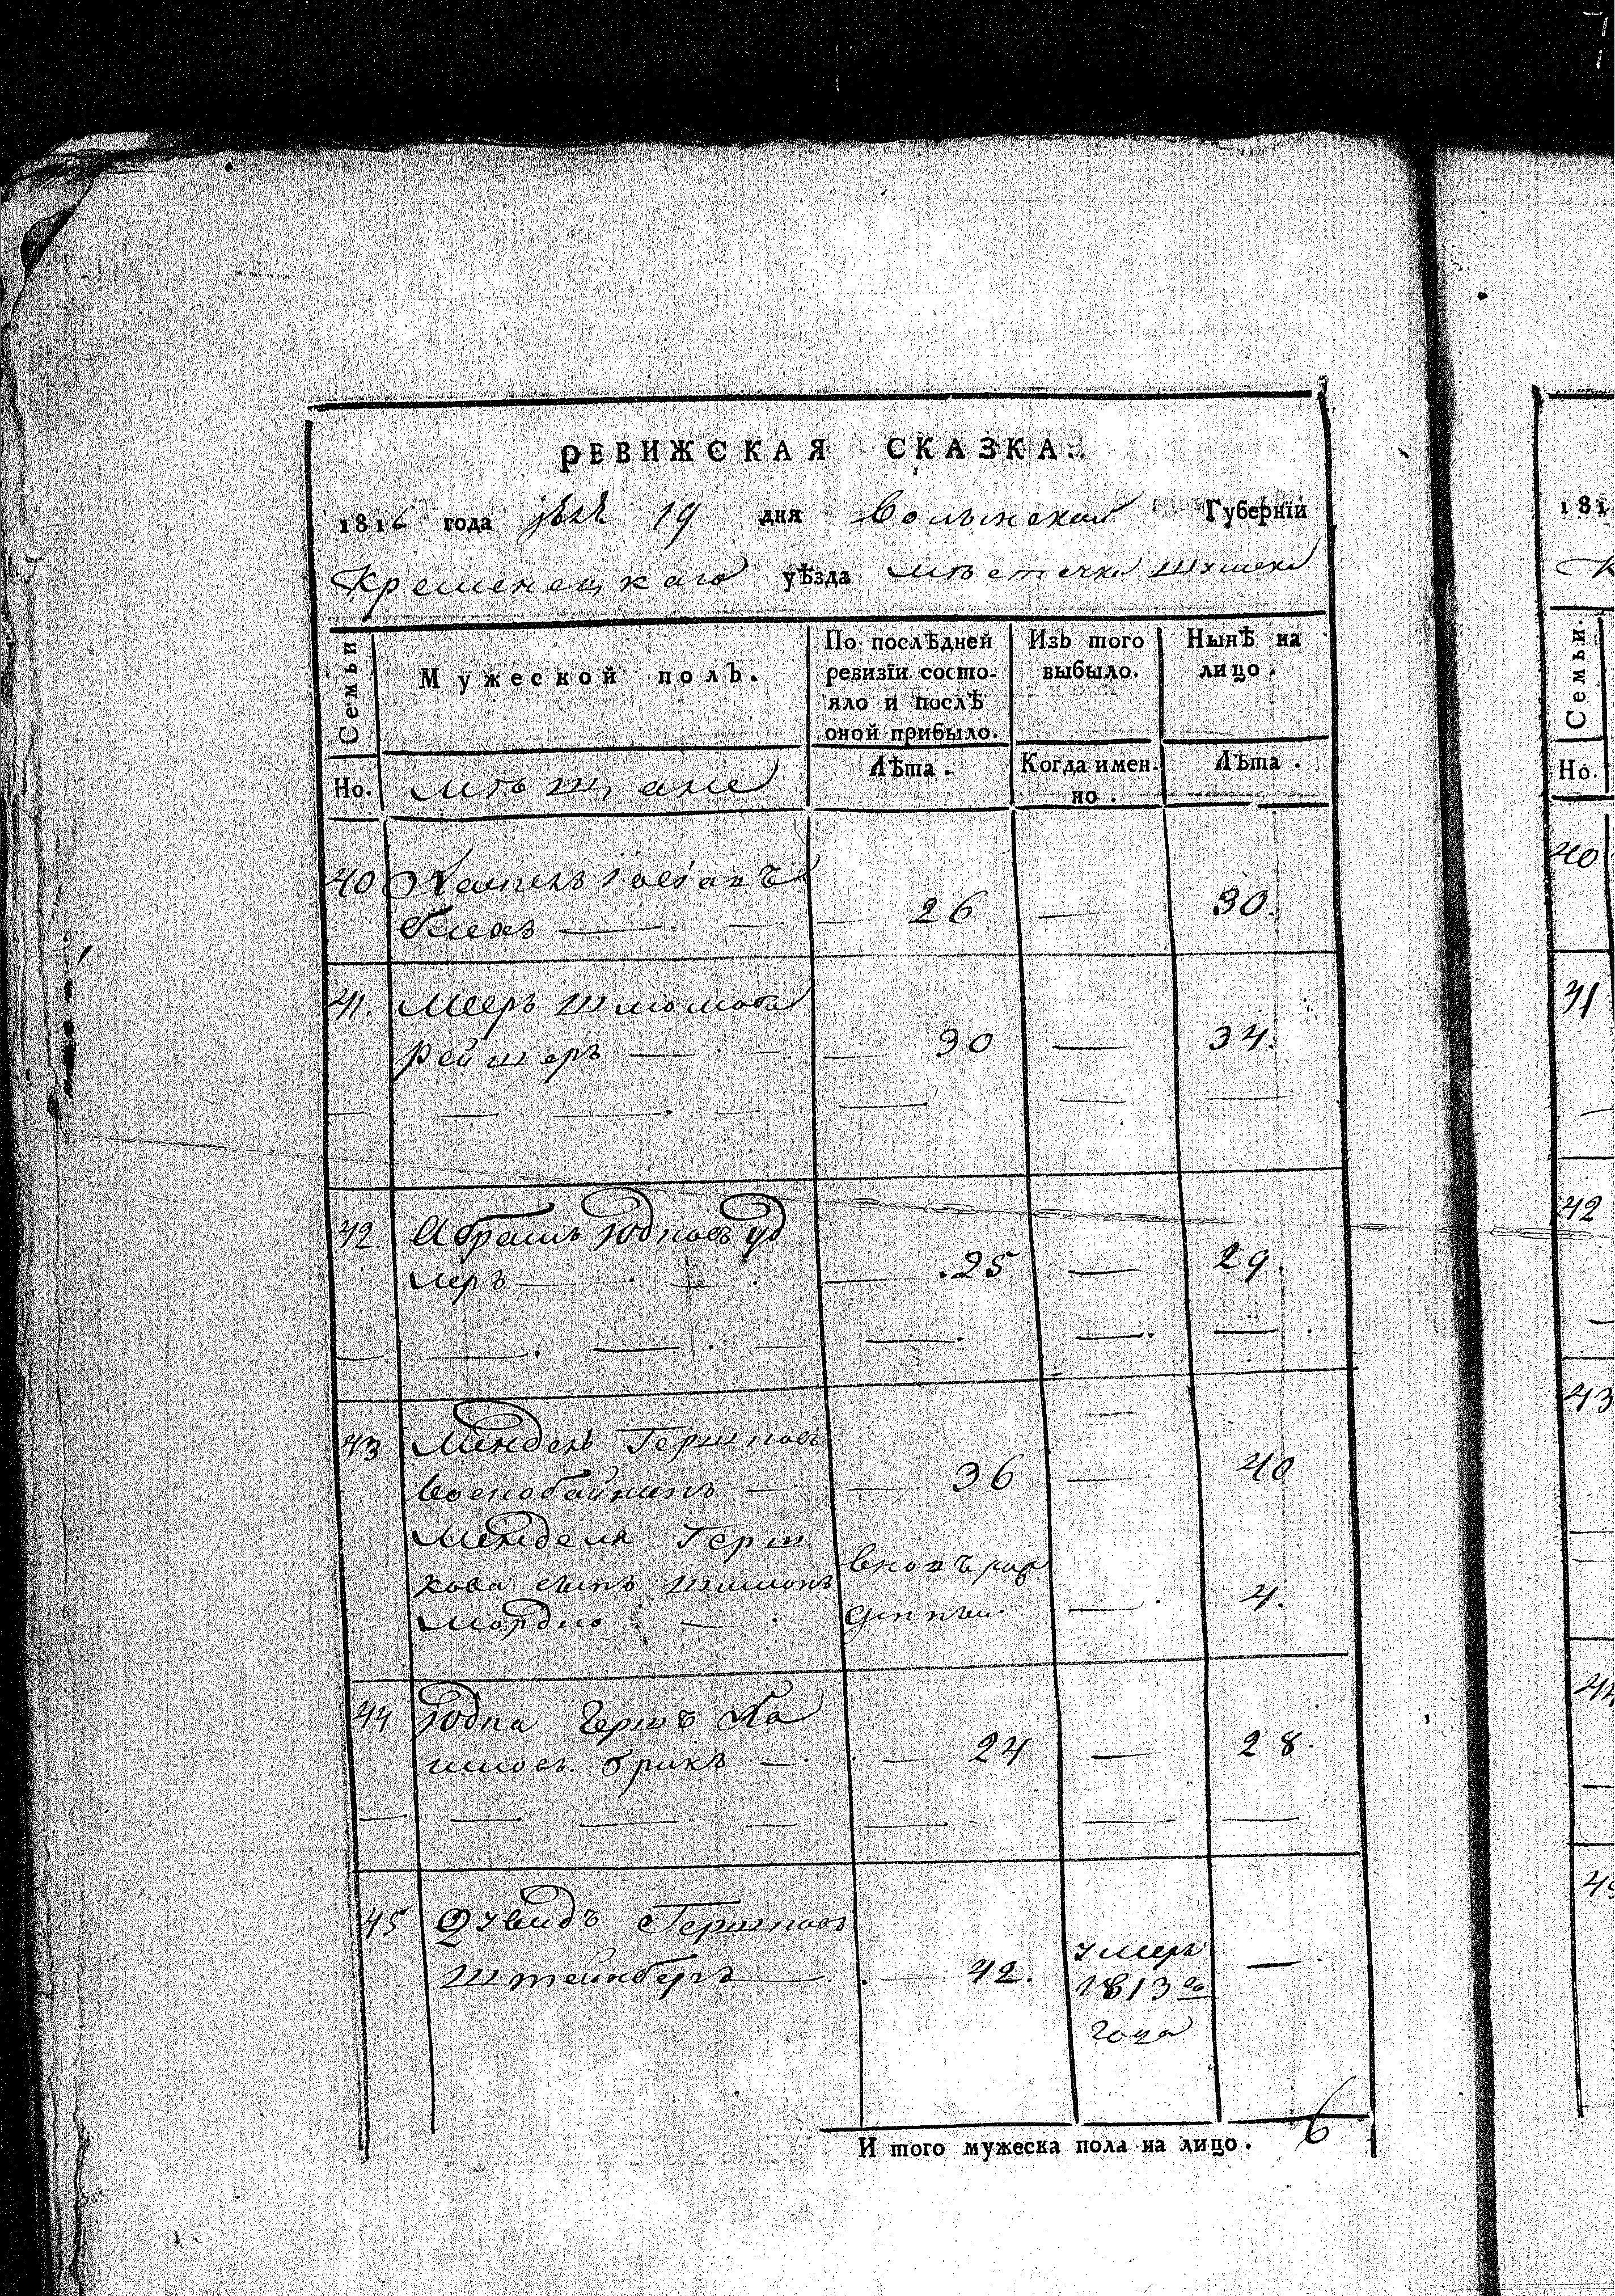 РЕВИЖСКАЯ СКАЗКА.
1816 года 19 дня Волынской Губернїи
Кременецкаго уѣзда мѣстечка Шумска
Семьи
Мужеской полъ.
По послѣдней ревизїи состо-
яло и послѣ
оной прибыло.
Изъ того
выбыло.
Нынѣ на
лицо.
Но.
мѣщане
Лѣта.
Когда имен-
но.
Лѣта.
40
26 — 30.
41. Мееръ Шлюмовъ
Рейшеръ — 30 — 34.
42. Абрамъ Юдковъ Уд
леръ — 25 — 29.
43 Мендель Гершковъ
— 36 — 40
Менделя Герш
кова сынъ Шимонъ
Мордко
вновь рож
— 4.
44 Юдка Гершъ
брикъ — 24 — 28.
45 Дувидъ Гершковъ
Штейнберъ — 42.
умеръ
1813го
года
—
И того мужеска пола на лицо. 6
181
К
Семьи.
Но.
40
41
42
43
44
45